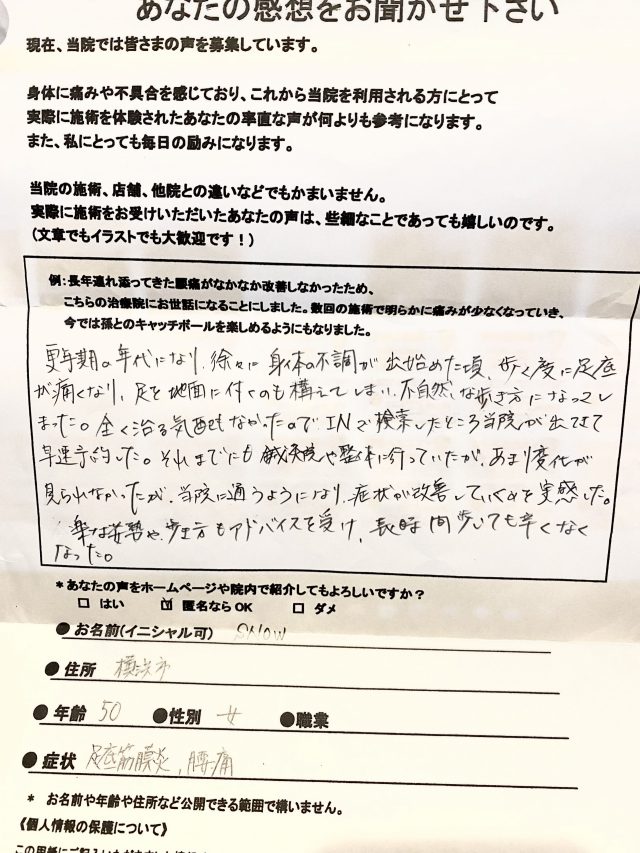 あなたの感想をお聞かせ下さい
現在、当院では皆さまの声を募集しています。
身体に痛みや不具合を感じており、これから当院を利用される方にとって
実際に施術を体験されたあなたの率直な声が何よりも参考になります。
また、私にとっても毎日の励みになります。
当院の施術、店舗、他院との違いなどでもかまいません。
実際に施術をお受けいただいたあなたの声は、些細なことであっても嬉しいのです。
(文章でもイラストでも大歓迎です！)
例：長年連れ添ってきた腰痛がなかなか改善しなかったため、
こちらの治療院にお世話になることにしました。数回の施術で明らかに痛みが少なくなっていき、
今では孫とのキャッチボールを楽しめるようにもなりました。
更年期の年代になり、徐々に身体の不調が出始めた頃、歩く度に足底
が痛くなり、足を地面に付くのも構えてしまい、不自然な歩き方になってし
まった。全く治る気配もなかったのでINで検索したところ当院が出てきて
早速予約した。それまでにも鍼灸院や整体に行っていたが、あまり変化が
見られなかったが、当院に通うようになり、症状が改善していくのを実感した。
楽な姿勢や歩き方もアドバイスを受け、長時間歩いても辛くなく
なった。
*あなたの声をホームページや院内で紹介してもよろしいですか？
□ はい ☑ 匿名ならOK □ ダメ
●お名前(イニシャル可) SNOW
●住所 横浜市
●年齢 50 ●性別 女 ●職業
●症状 足底筋膜炎、腰痛
* お名前や年齢や住所など公開できる範囲で構いません。
《個人情報の保護について》